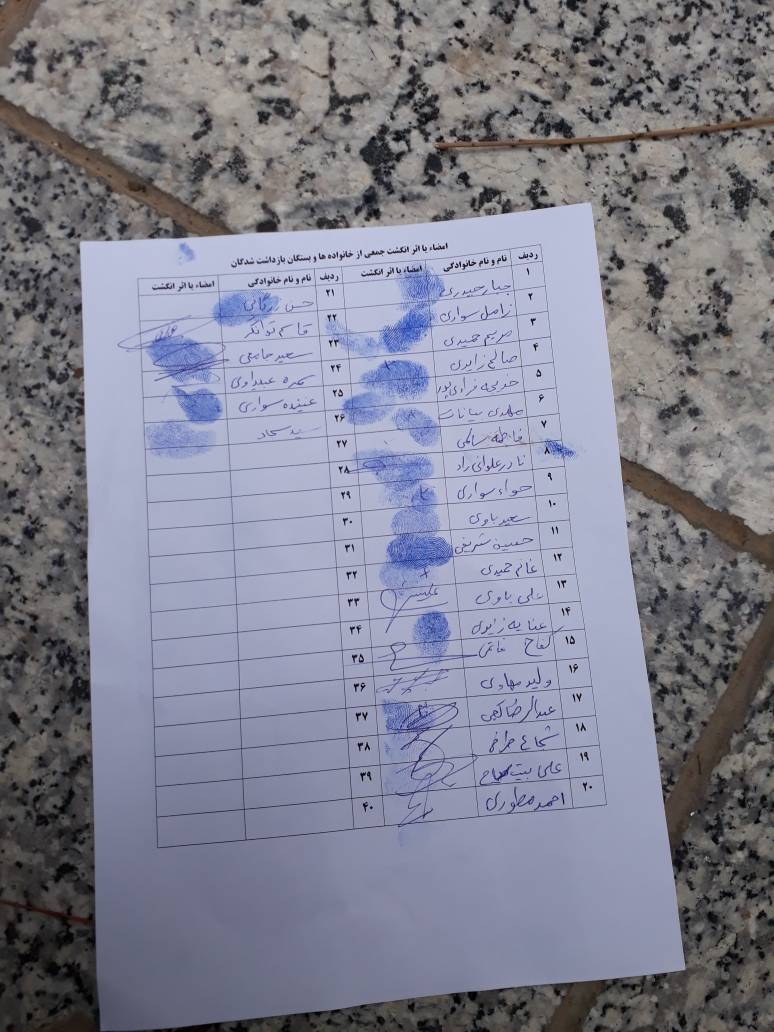 امضاء یا اثر انگشت جمعی از خانواده ها و بستگان بازداشت شدگان
ردیف نام و نام خانوادگی امضاء یا اثر انگشت ردیف نام و نام خانوادگی امضاء یا اثر انگشت
۱ جبار حیدری ۲۱ حسن
۲ زامل سواری ۲۲ قاسم توانگر
۳ مریم حمیدی ۲۳ سعید
۴ صالح زایری ۲۴
۵ خدیجه ۲۵ عنیده سواری
۶ مهدی ۲۶ سید سجاد
۷ فاطمه سالمی ۲۷
۸ نادر علوانی راد ۲۸
۹ حواء سواری ۲۹
۱۰ سعید باوی ۳۰
۱۱ حسین شریفی ۳۱
۱۲ غانم حمیدی ۳۲
۱۳ علی باوی ۳۳
۱۴ عنایه زایری ۳۴
۱۵ کفاح ۳۵
۱۶ ولید مهاوی ۳۶
۱۷ عبدالرضا کعبی ۳۷
۱۸ شجاع ۳۸
۱۹ علی بیت ۳۹
۲۰ احمد مطوری ۴۰